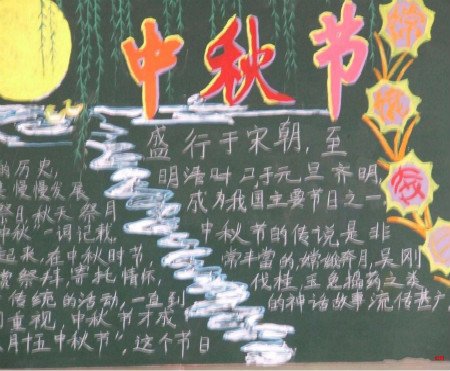 中秋节
盛行于宋朝,至
明清时 元旦齐明,
成为我国主要节日之一
中秋节的传说是非
常丰富的,嫦娥奔月,吴刚
伐桂,玉兔捣药之类
的神话故事流传甚广
的历史,
慢慢发展
祭日,秋天祭月
中秋"一词记载,
起来,在中秋时节,
祭拜,寄托情怀,
传统的活动,一直到
重视,中秋节才成
月十五中秋节",这个节日